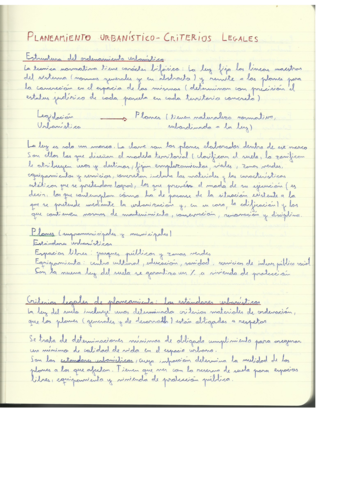 PLANEAMIENTO URBANÍSTICO - CRITERIOS LEGALES
Estructura del ordenamiento urbanístico
La técnica normativa tiene carácter bifásico. La ley fija las líneas maestras
del sistema (normas generales y en abstracto) y remite a los planes para
la concreción en el espacio de las mismas (determinan con precisión el
estatus jurídico de cada parcela en cada territorio concreto)
Legislación → Planes (tienen naturaleza normativa,
Urbanística subordinada a la ley)
La ley es solo un marco. La clave son los planes elaborados dentro de ese marco
Son ellos los que diseñan el modelo territorial (clasifican el suelo, lo zonifican
le atribuyen usos y destinos, fijan emplazamientos, viales, zonas verdes,
equipamientos y servicios, concretan incluso los materiales y las características
estéticas que se pretenden lograr), los que prevén el modo de su ejecución (es
decir, los que contemplan cómo ha de pasarse de la situación existente a la
que se pretende mediante la urbanización y, en su caso, la edificación) y los
que contienen normas de mantenimiento, conservación, y disciplina.
Planes (supramunicipales y municipales)
Estructura urbanística
Espacios libres: parques, públicos y zonas verdes
Equipamiento: centro cultural, educación, sanidad, servicios de interés público social
Con la nueva ley del suelo se garantiza un % a vivienda de protección
Criterios legales de planeamiento: los estándares urbanísticos
La ley del suelo incluye unos determinados criterios materiales de ordenación,
que los planes (generales y de desarrollo) están obligados a respetar.
Se trata de determinaciones mínimas de obligado cumplimiento para asegurar
un mínimo de calidad de vida en el espacio urbano.
Son los estándares urbanísticos, cuya infracción determina la nulidad de los
planes a los que afectan. Tienen que ver con la reserva de suelo para espacios
libres, equipamiento y vivienda de protección pública.